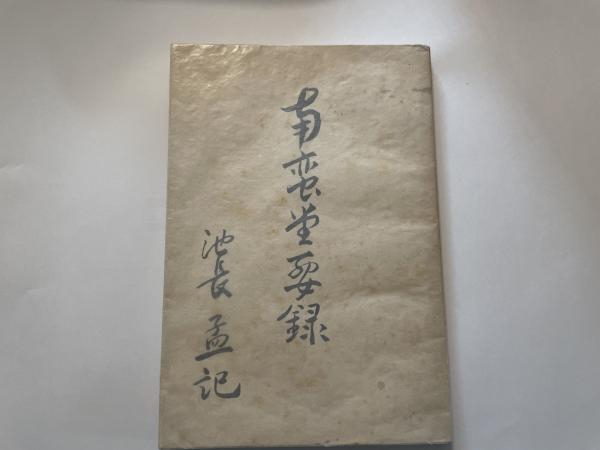 南蛮堂要録
池長孟記